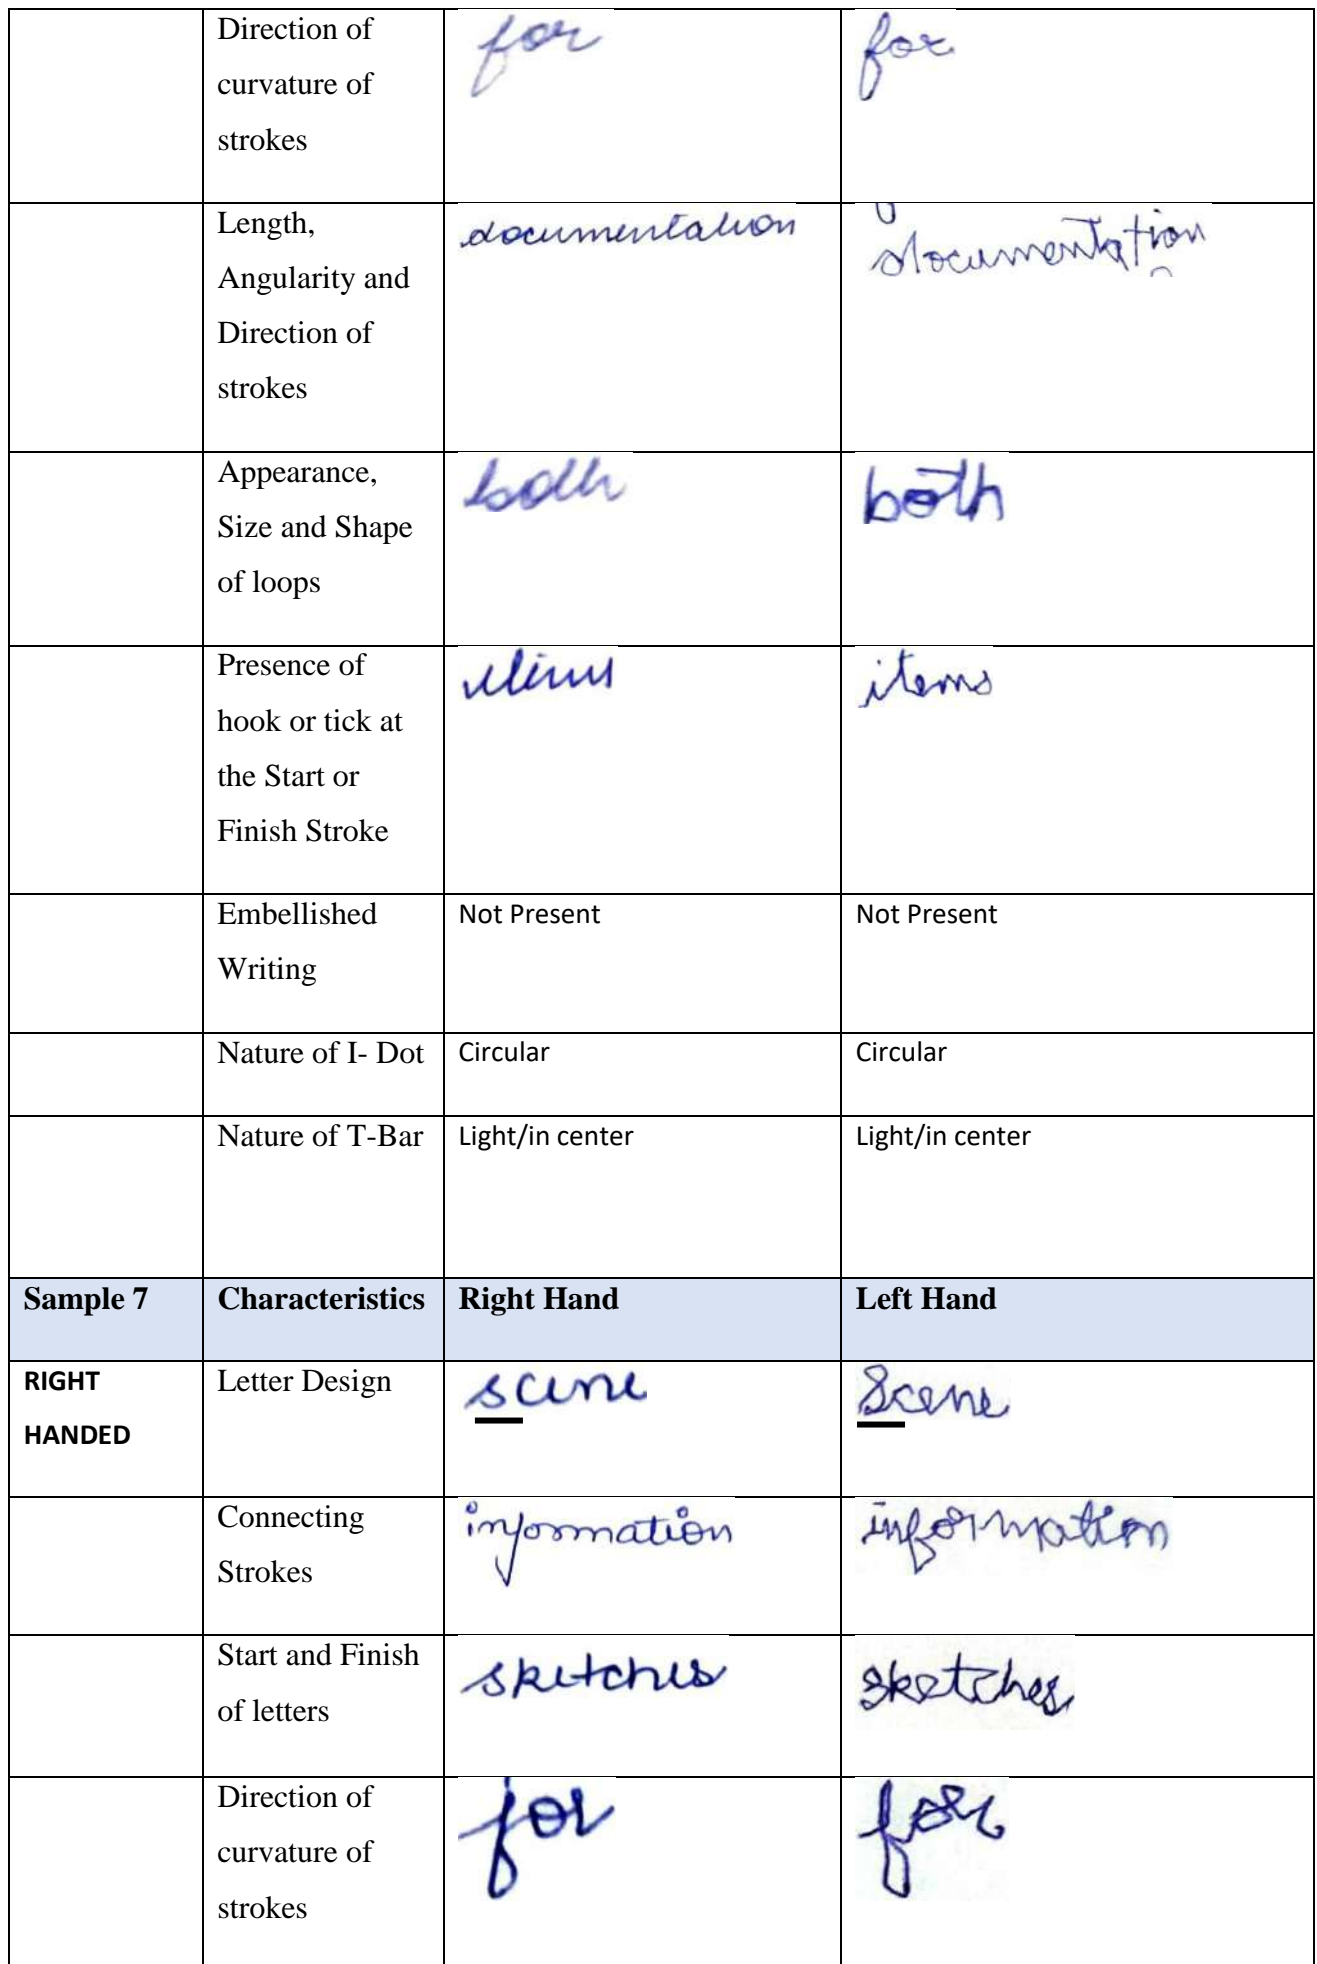 Direction of
curvature of
strokes
for
for
Length,
Angularity and
Direction of
strokes
documentation
documentation
Appearance,
Size and Shape
of loops
both
both
Presence of
hook or tick at
the Start or
Finish Stroke
items
items
Embellished
Writing
Not Present
Not Present
Nature of I- Dot
Circular
Circular
Nature of T-Bar
Light/in center
Light/in center
Sample 7
Characteristics
Right Hand
Left Hand
RIGHT
HANDED
Letter Design
scene
Scene
Connecting
Strokes
information
information
Start and Finish
of letters
sketches
sketches
Direction of
curvature of
strokes
for
for